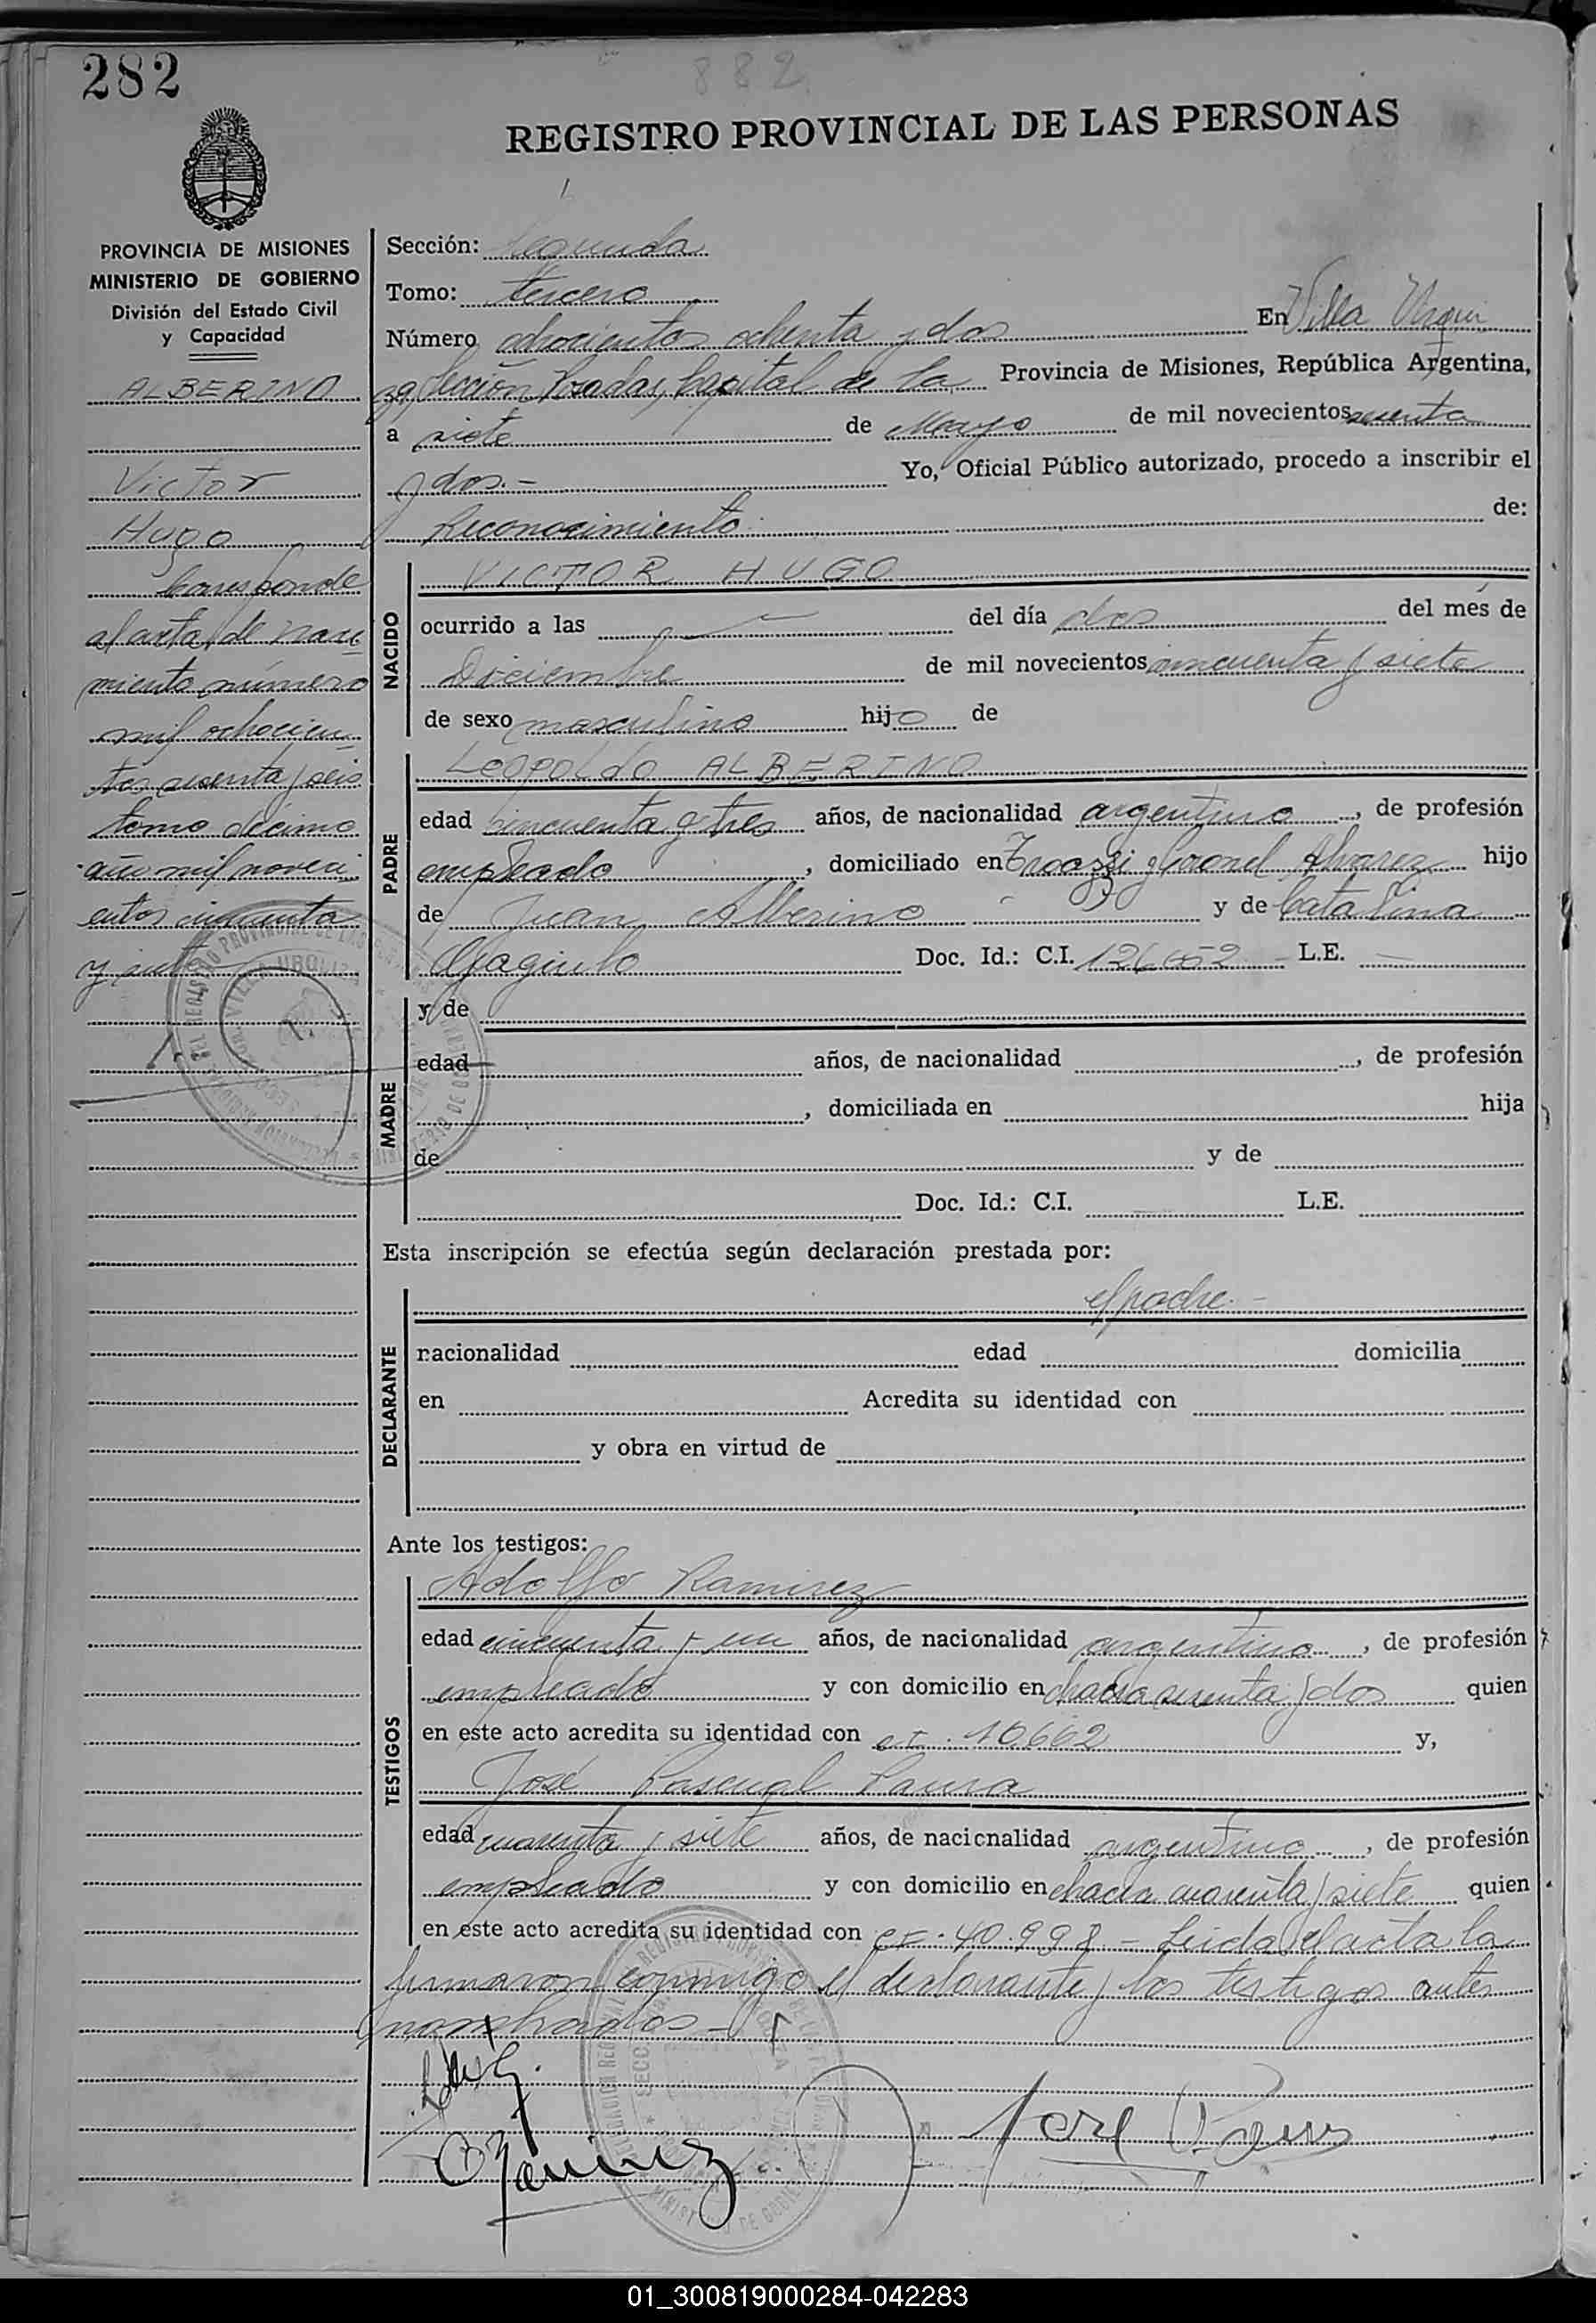 282
882
REGISTRO PROVINCIAL DE LAS PERSONAS
PROVINCIA DE MISIONES
MINISTERIO DE GOBIERNO
División del Estado Civil
y Capacidad
ALBERINO
Victor
Hugo
Corresponde
al acta de naci
miento número
mil ochocien
tos sesenta y seis
tomo décimo
año mil noveci
entos cincuenta
y siete
Sección: Segunda
Tomo: tercero
Número ochocientos ochenta y dos En Villa Urqui
za Sección Posadas, Capital de la Provincia de Misiones, República Argentina,
a siete de Mayo de mil novecientos sesenta
y dos.- Yo, Oficial Público autorizado, procedo a inscribir el
Reconocimiento de:
NACIDO
VICTOR HUGO
ocurrido a las del día dos del més de
Diciembre de mil novecientos cincuenta y siete
de sexo masculino hijo de
PADRE
Leopoldo ALBERINO
edad cincuenta y tres años, de nacionalidad argentino, de profesión
empleado, domiciliado en y Coronel Alvarez hijo
de Juan Alberino y de Catalina
Doc. Id.: C.I. 126.652 - L.E. —
MADRE
y de
edad años, de nacionalidad , de profesión
, domiciliada en hija
de y de
Doc. Id.: C.I. L.E.
Esta inscripción se efectúa según declaración prestada por:
DECLARANTE
el padre.-
nacionalidad edad domicilia
en Acredita su identidad con
y obra en virtud de
Ante los testigos:
TESTIGOS
Adolfo Ramirez
edad cincuenta y un años, de nacionalidad argentino, de profesión
empleado y con domicilio en chacra sesenta y dos quien
en este acto acredita su identidad con c.I. 10.662 y,
José Pascual
edad cuarenta y siete años, de nacionalidad argentino, de profesión
empleado y con domicilio en chacra cuarenta y siete quien
en este acto acredita su identidad con CI. 40.998 - Leida el acta la
firmaron conmigo el declarante y los testigos antes
nombrados -
01_300819000284-042283